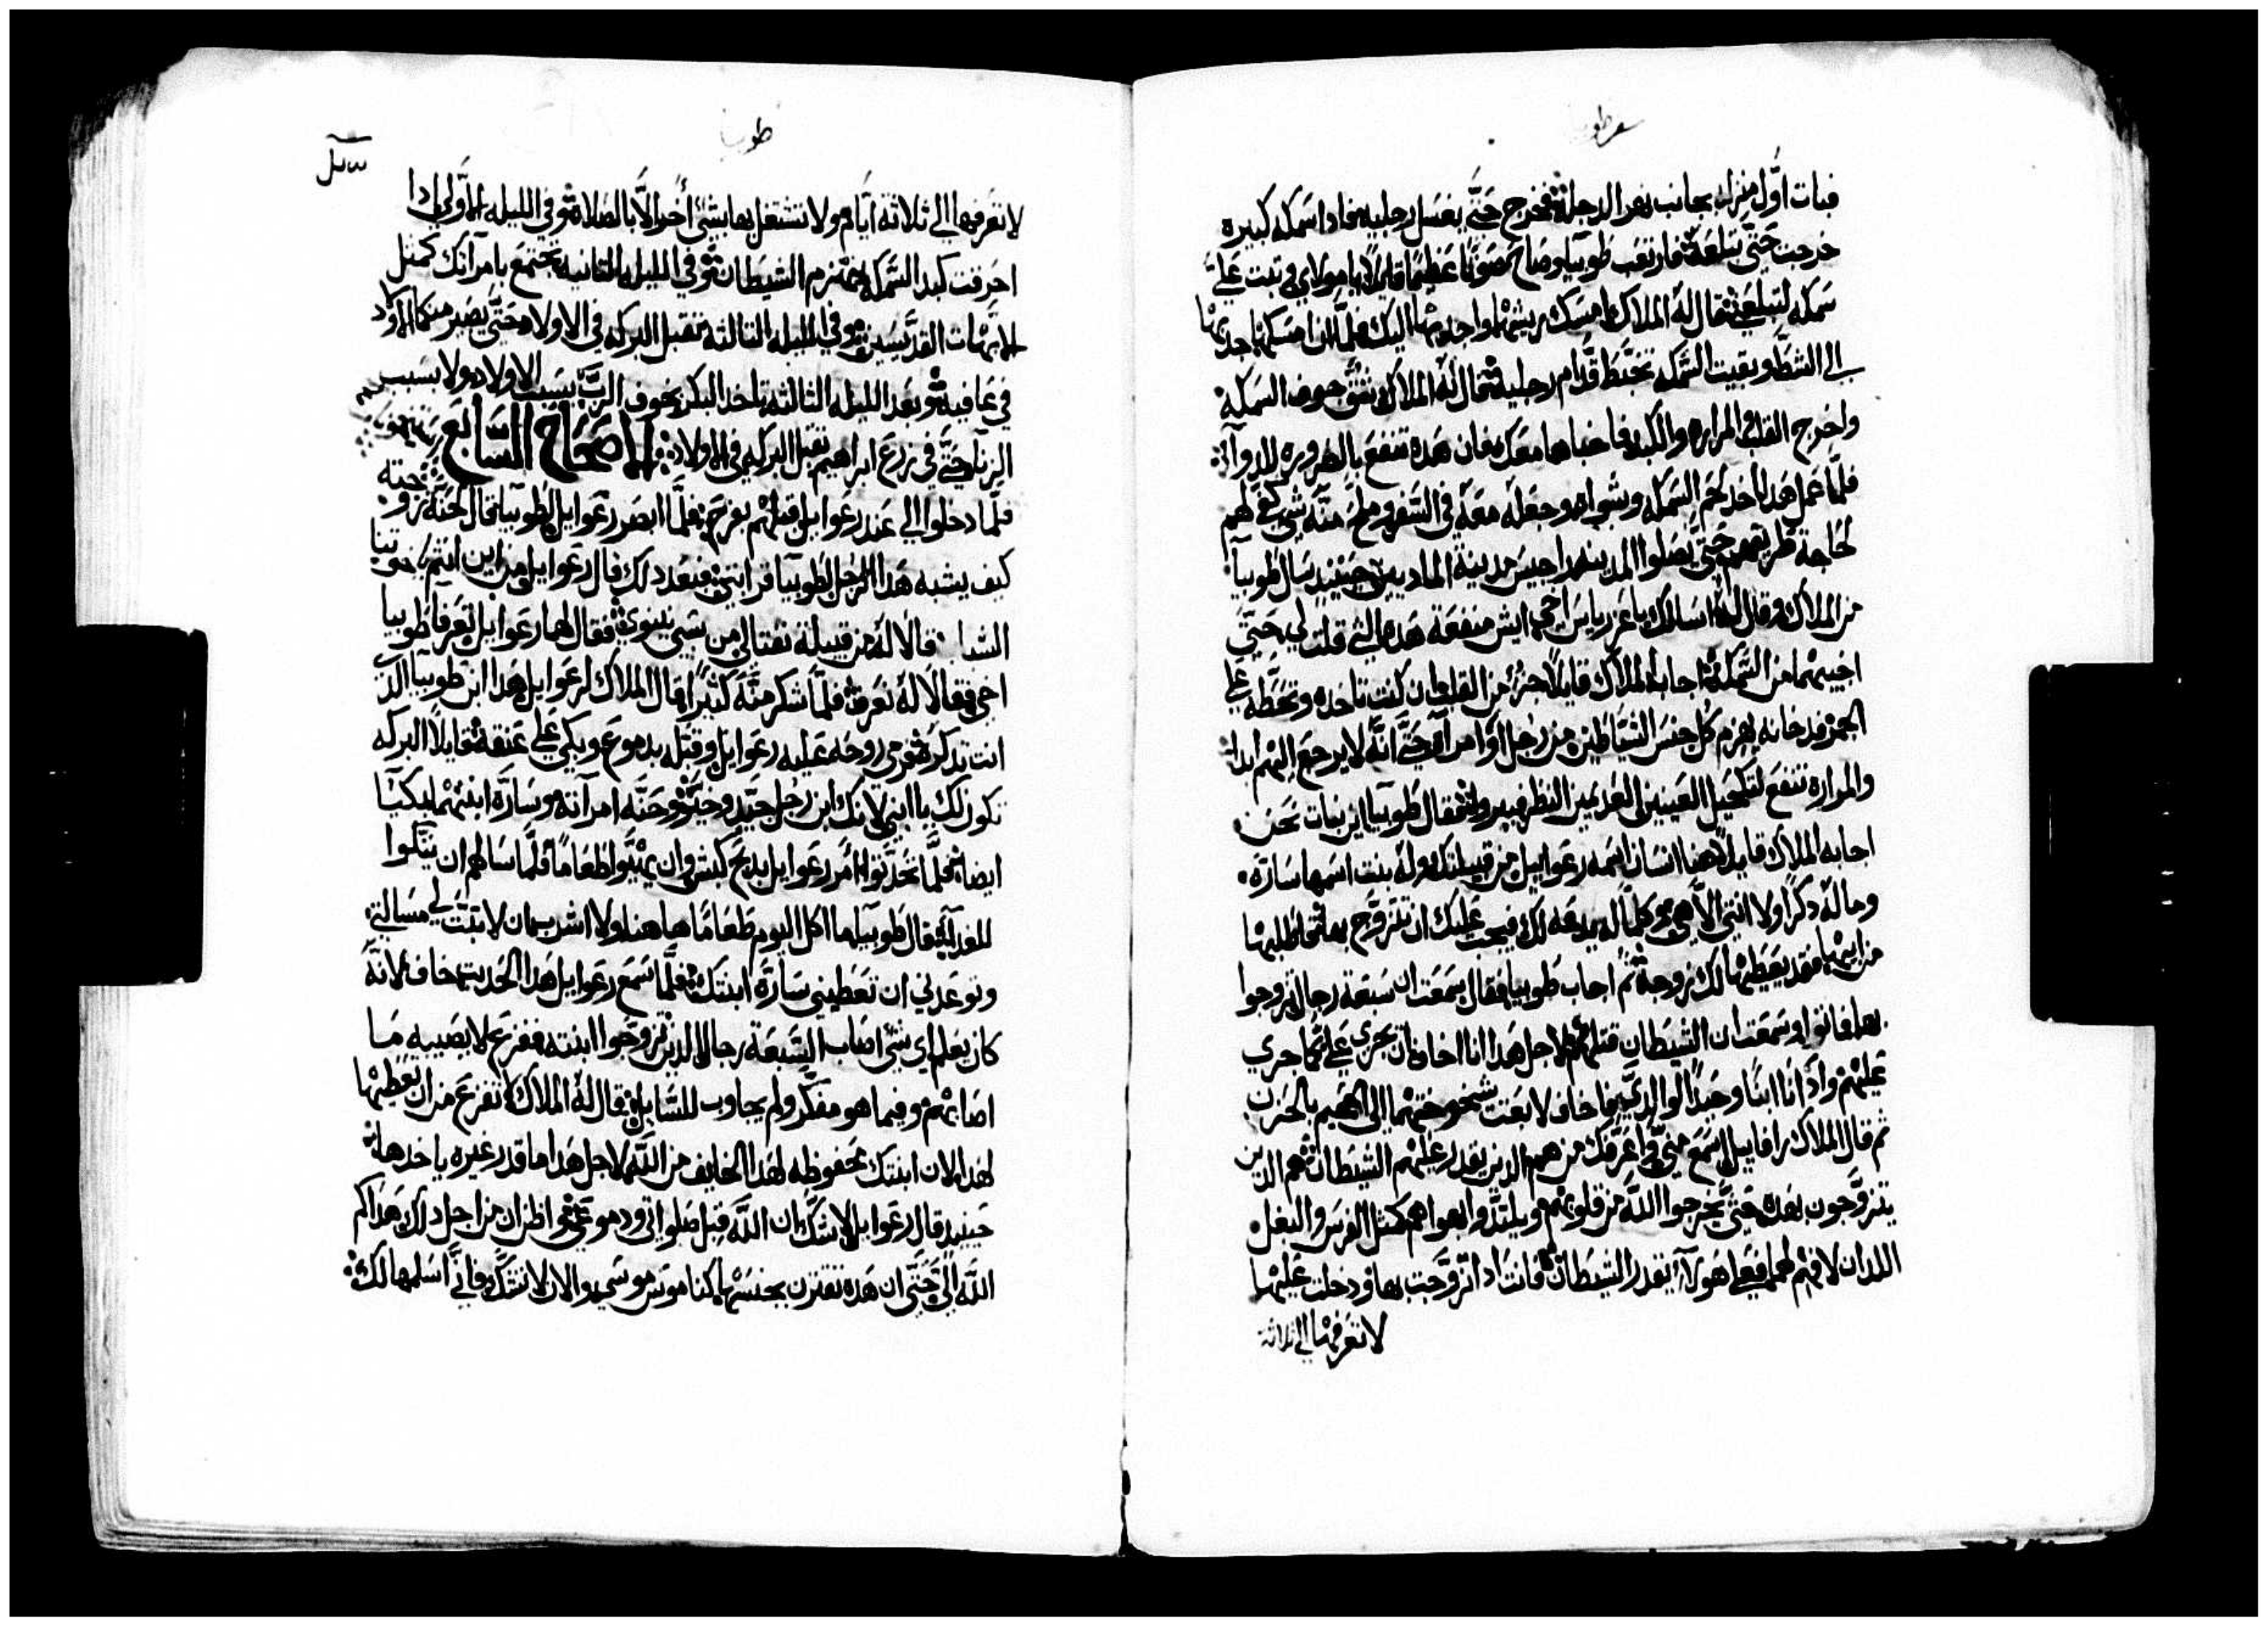 سفر طوبيا
فبات اوَّل منزله بجانب نهر الدجلة فخرج حتَّى يغسل رجليه فاذا سمكه كبيره
خرجت حتى تبلعه فارتعب طوبيا وصاح صوتًا عظيمًا قايلًا يا مولاي وثبت عليّ
سمكه لتبلعني فقال له الملاك امسك بريشها واجذبها اليك فلما امسكها جذبها
الى الشط وبقيت السمكه تختبط قدام رجليه فقال له الملاك شق جوف السمكه
واخرج القلب والمراره والكبد فاخباها معك فان هذه تنفع بالضروره للدوآ
فلما عمل هذا اخد لحم السمكه وشواه وجعله معه في السفر وملح منه شي يكفي لهم
لحاجة طريقهم حتى يصلوا المدينه راجيس مدينة الماديين حينيد سال طوبيا
من الملاك وقال له اسالك يا عزرياس اخي ايش منفعة هذه التي قلت لي حتى
اخبيها من السمكة اجابه الملاك قايلا جزؤ من القلب ان كنت تاخده وتحطه على
الجمر فدخانه يهزم كل جنس الشياطين من رجل او امراه حتى انه لا يرجع اليهم ابدا
والمراره تنفع لتكحيل العينين العديمين النظر فيبروا فقال طوبيا اين نبات نحن
اجابه الملاك قايلا هنا انسان اسمه رعوايل من قبيلتك وله بنت اسمها سارة
وماله ذكرًا ولا انثى الا هي وكلما له يدفعه لك فيجب عليك ان تتزوج بها فاطلبها
من ابيها فقد يعطيها لك زوجة ثم اجاب طوبيا فقال سمعت ان سبعة رجال تزوجوا
بها فماتوا وسمعت ان الشيطان قتلهم لاجل هذا انا اخاف ان يجري علي كما جري
عليهم واذ انا ابنًا وحيدًا لوالديَّ فاخاف لا بعت شيخوختهما الى الجحيم بالحزن
ثم قال الملاك رافاييل اسمع مني واعرفك من هم الذين يقدر عليهم الشيطان هم الذين
يتزوجون بقدر حتى يخرجوا الله من قلوبهم ويلتذوا بهواهم كمثل الفرس والبغل
اللدان لا فهم لهما فعلى هولآء يقدر الشيطان فانت اذا تزوجت بها ودخلت عليها
لا تعرفها الى ثلاثة
طوبيا
لا تعرفها الى ثلاثة ايام ولا تشتغل بها بشي اخر الا بالصلاة وفي الليله الاولى اذا
احرقت كبد السمكه ينهزم الشيطان وفي الليله الثانيه تجتمع بامرآتك كمثل
الابهات القديسين وفي الليله الثالثه تقبل البركه في الاولاد حتى يصير منكما الاولاد
في عافية وبعد الليله الثالثه تاخد البكر بخوف الرب بسبب الاولاد ولا بسبب
الزنا حتى في زرع ابراهيم تقبل البركه في الاولاد الاصحاح السابع
فلما دخلوا الى عند رعوايل قبلهم بفرح فلما ابصر رعوايل لطوبيا قال لحنة زوجته
كيف يشبه هذا الرجل لطوبيا قرابتي فبعد ذلك قال رعوايل من اين انتم يا اخوتنا
الشبا قالا له من قبيلة نفتالي من سبي نينوى فقال لهما رعوايل تعرفا طوبيا
اخي فقالا له نعرفه فلما شكر منه كثيرًا قال الملاك لرعوايل هذا ابن طوبيا الذي
انت تذكره فرمى روحه عليه رعوايل وقبله بدموع وبكى على عنقه قايلا البركه
تكون لك يا ابني لانك ابن رجل جيد وحنه امرآته وسارة ابنتهما يبكيا
ايضا فلما تحدثوا امر رعوايل بذبح كبش وان يهيّوا طعامًا فلما سالهم ان يتكوا
للغدا قال طوبيا ما اكل اليوم طعامًا هاهنا ولا اشرب ان لا تثبت لي مسالتي
وتوعدني ان تعطيني سارة ابنتك فلما سمع رعوايل هذا الحديث خاف لانه
كان يعلم اي شي اصاب السبعة رجال الذين تزوجوا ابنته ففزع لا يصيبه ما
اصابهم وفيما هو مفكر ولم يجاوب للسايل فقال له الملاك لا تفزع من ان تعطيها
لهذا لان ابنتك محفوظه لهذا الخايف من الله لاجل هذا ما قدر غيره ياخدها
حينيد قال رعوايل لا شك ان الله قبل صلواتي ودموعي واظن ان من اجل ذلك هداكم
الله الي حتى ان هذه تقترن بجنسها كناموس موسى والان لا تشك فاني اسلمها لك